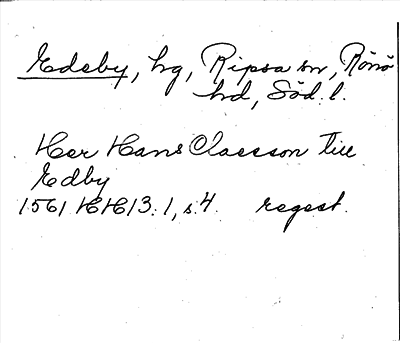 Edeby, hg, Ripsa sn, Rönö
hd, Söd. l.
Her Hans Claesson till
Edby
1561 HH 13:1, s. 4. regest.